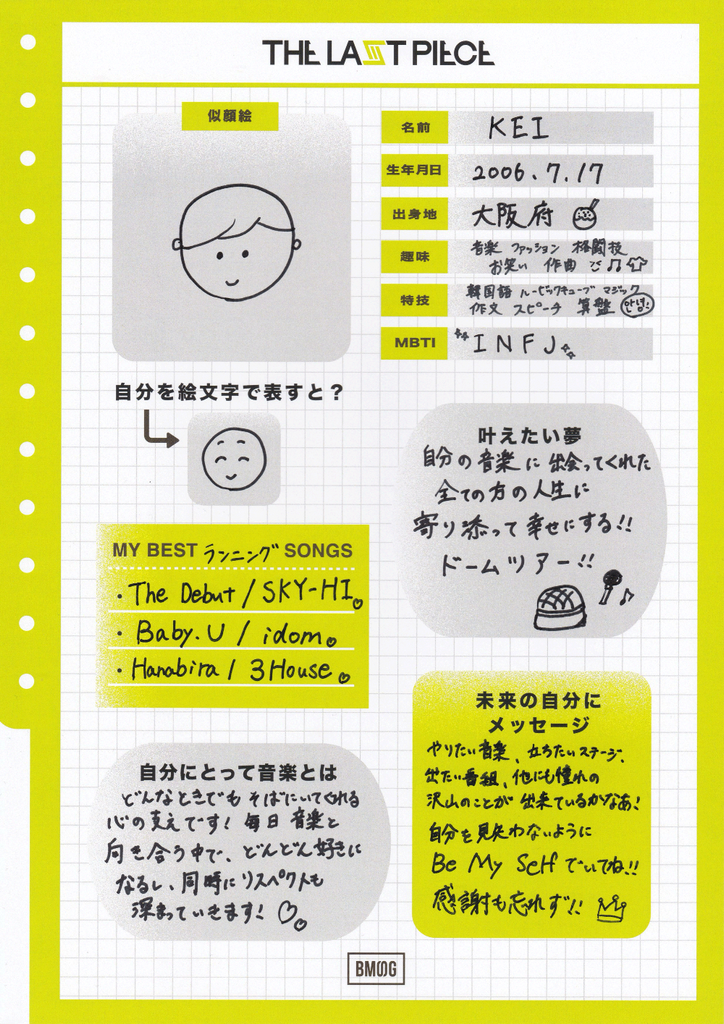 THE LAST PIECE
似顔絵
名前 KEI
生年月日 2006.7.17
出身地 大阪府
趣味 音楽 ファッション 格闘技
お笑い 作曲
特技 韓国語 ルービックキューブ マジック
作文 スピーチ 算盤 안녕!
MBTI INFJ
自分を絵文字で表すと？
叶えたい夢
自分の音楽に出会ってくれた
全ての方の人生に
寄り添って幸せにする!!
ドームツアー!!
MY BEST ランニング SONGS
・The Debut / SKY-HI
・Baby.U / idom
・Hanabira / 3House
未来の自分に
メッセージ
やりたい音楽、立ちたいステージ、
出たい番組、他にも憧れの
沢山のことが出来ているかなあ!
自分を見失わないように
Be My Selfでいてね!!
感謝も忘れず!!
自分にとって音楽とは
どんなときでもそばにいてくれる
心の支えです! 毎日音楽と
向き合う中で、どんどん好きに
なるし、同時にリスペクトも
深まっていきます!
BMSG